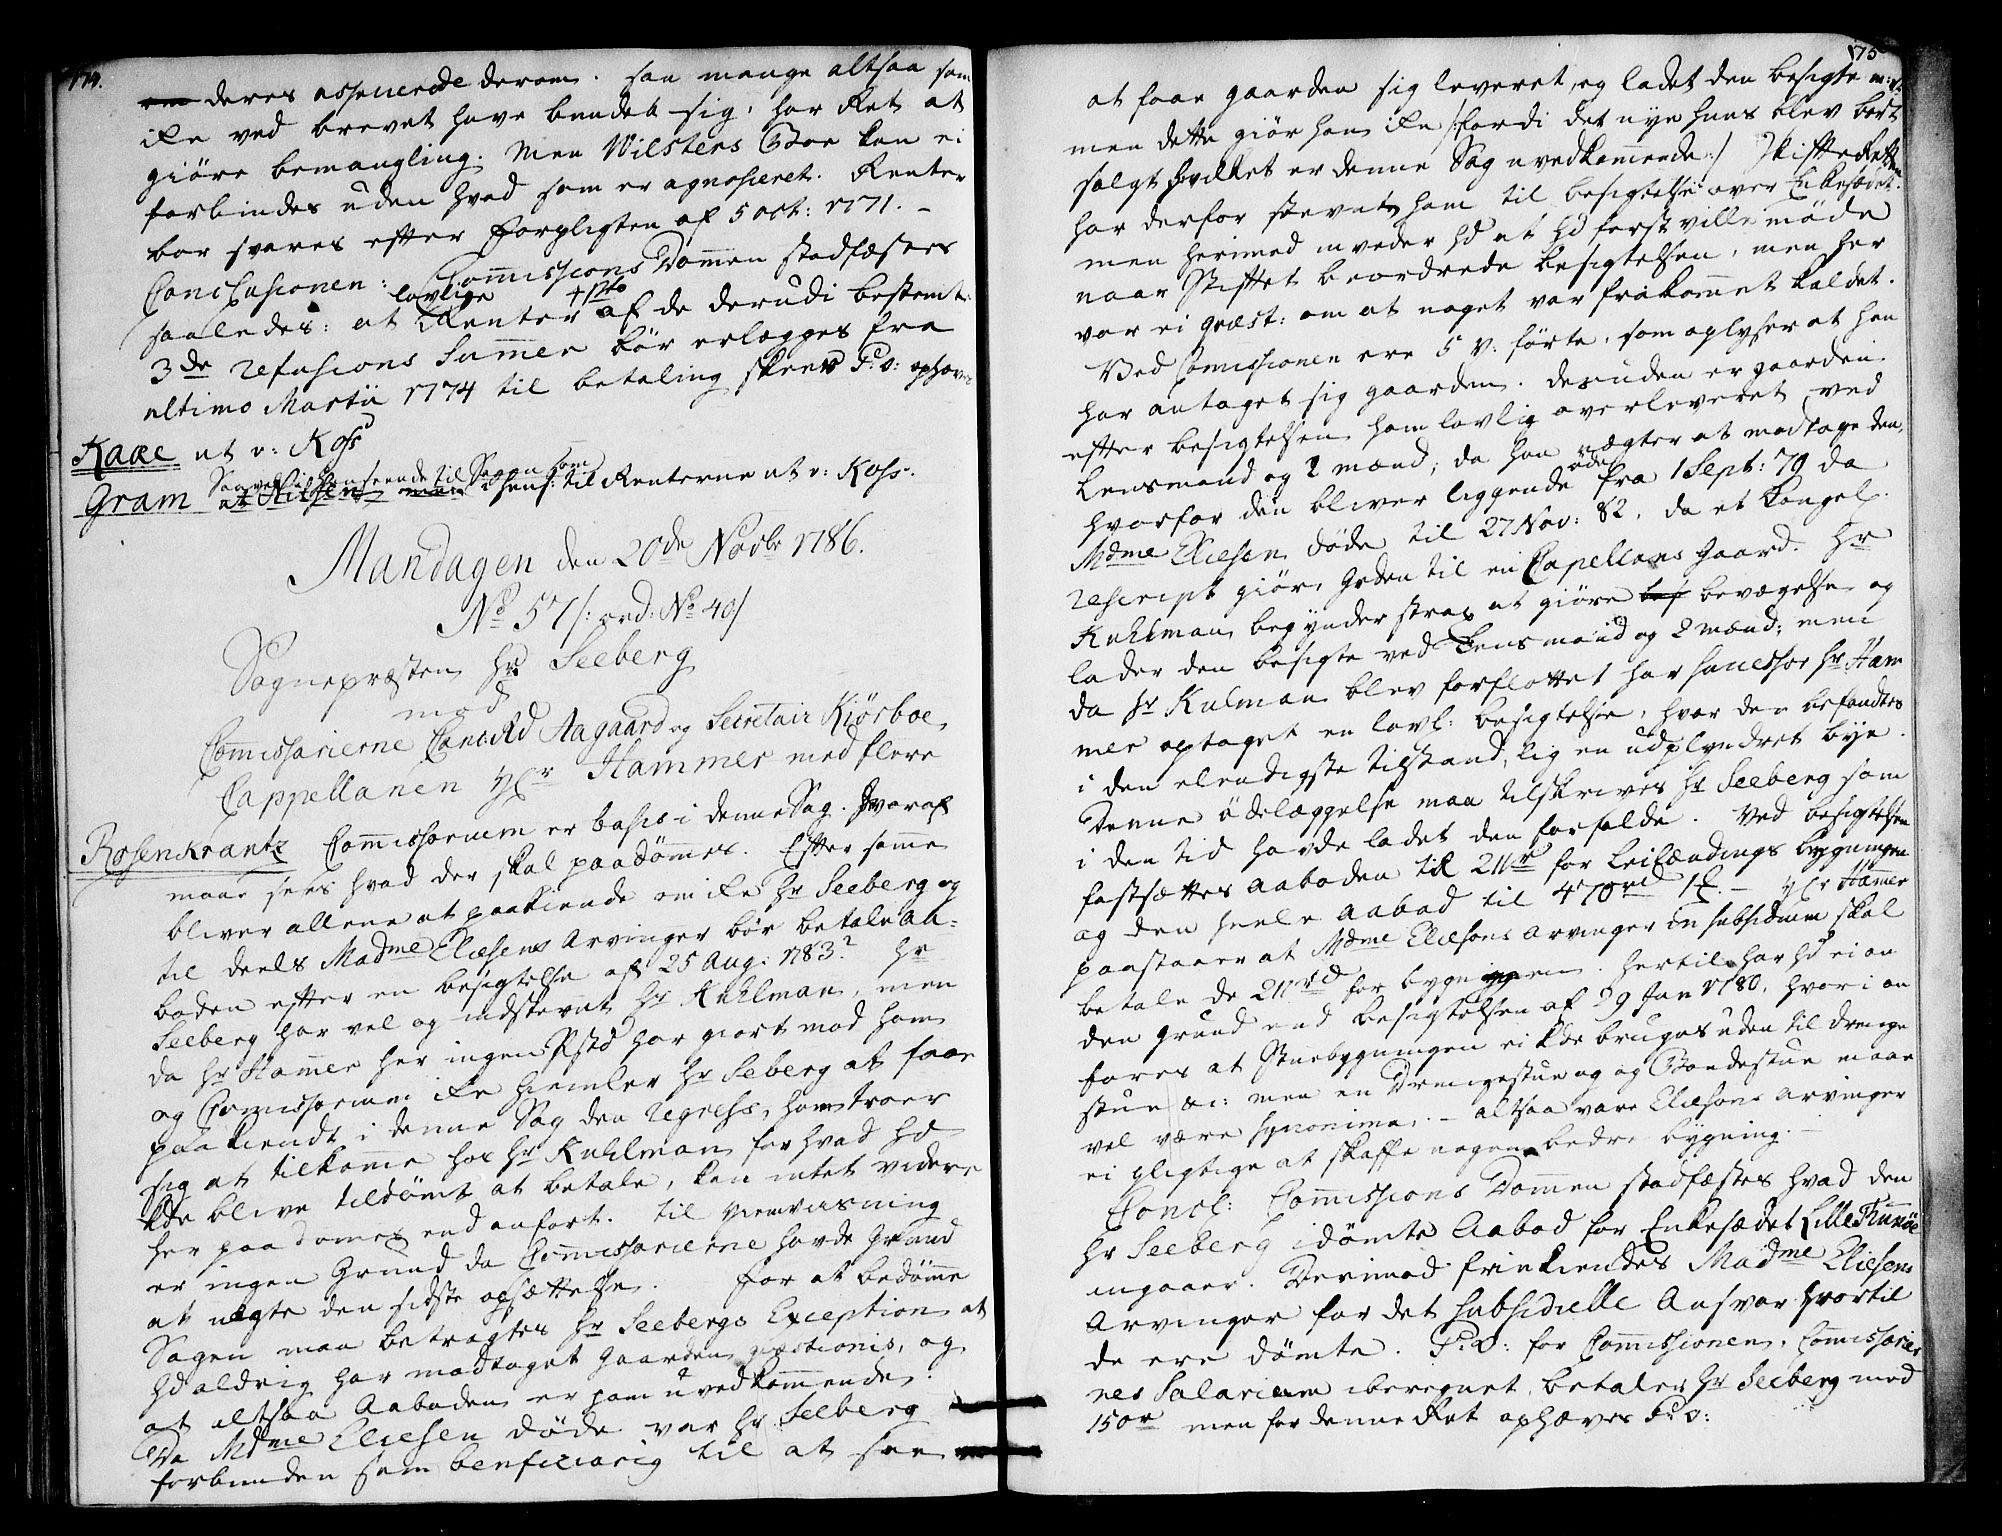 174.
om deres assenerede derom. saa mange altsaa som
ike ved brevet have bundet sig, har Ret at
giöre bemangling. Men Wilsters Boe kan ei
forbindes uden hvad som er agnosceret. Renter
bör svares efter Forpligten af 5 Oct: 1771. –
Conclusionen: Commissions Dommen stadfæstes
saaledes: at lovlige Renter + pto af de derudi bestemte
3de refusions Summer bör erlægges fra
ultimo Martii 1774 til betaling skeer P: O: ophæves
Kaae ut v: Kofs
Gram Saavel i Henseende til Sagen som i Hens: til Renterne ut v: Kofs.
Mandagen den 20de Novbr 1786.
No 57 /: ord: No 40/
Sognepræsten Hr Seeberg
mod
Commissarierne Cancellird Aagaard og Secretair Kiörboe,
Cappellanen Hr Hammer med flere
Rosenkrantz Commissorium er basis i denne Sag. hvoraf
maae sees hvad der skal paadömmes. Efter samme
bliver allene at paakiende om ike Hr Seeberg og
til deels Madme Eliesens Arvinger bör betale Aa-
boden efter en besigtelse af 25 Aug: 1783? Hr
Seeberg har vel og indstevnt Hr Kuhlman, men
da Hr Hammer her ingen Pstd har giort mod ham
og Commissorium ike hiemler Hr Seberg at faae
paakiendt i denne Sag den regress, han troer
sig at tilkomme hos Hr Kuhlman for hvad hd
kde blive tildömt at betale, kan intet videre
her paadömes end anfört. til Hiemviisning
er ingen Grund da Commissarierne havde Grund
at nægte den sidste opsættelse. For at bedömme
Sagen maa betragtes Hr Seebergs Exception at
hd aldrig har modtaget Gaarden qvæstionis, og
at altsaa Aaboden er ham uvedkommende.
Da Mdme Eliesen döde var Hr Seeberg
forbunden som beneficiarig til at see
175
at faae gaarden sig leveret, og ladet den besigte m:v:
men dette giör han ike /:fordi det nye huus blev bort
solgt hvilket er denne Sag uvedkommende:/ Skifte Retten
har derfor stevnt ham til besigtelse over Enkesædet.
men herimod inveder hd at hd först ville möde
naar Stiftet beordrede besigtelsen, men her
var ei qvæst: om at noget var frakommet kaldet.
Ved Commissionen ere 5 v: förte, som oplyser at han
har antaget sig gaarden. desuden er gaarden
efter besigtelsen ham lovlig overleveret ved
Lensmand og 2 mænd; da han nægter at modtage den,
hvorfor den bliver liggende öde fra 1 Sept: 79 da
Mdme Eliesen döde til 27 Nov: 82, da et kongel.
rescript giör Grden til en Capellans Gaard. Hr
Kuhlman begynder strax at giöre bes bevægelse og
lader den besigte ved Lensmand og 2 mænd; men
da Hr Kulman blev forflottet har successor Hr Ham
mer optaget en lovl: besigtelse, hvor den befandtes
i den elendigste tilstand, lig en udplyndret bye.
Denne ödelæggelse maa tilskrives Hr Seeberg som
i den tid havde ladet den forfalde. Ved besigtelsen
fastsættes Aaboden til 211rd for Leilændings bygningen
og den heele Aabod til 470rd 1ß. – Hr Hammer
paastaaer at Mdme Eliesens Arvinger in subsidium skal
betale de 211rd for bygningen. hertil har hd ei an
den grund end besigtelsen af 29 Jan 1780. hvori an
föres at Stuebygningen ei kde bruges uden til drenge
stue &c: men en Drengestue og og Bondestue maae
vel være synonima. – altsaa vare Eliesens Arvinger
ei pligtige at skaffe nogen bedre bygning. –
Concl: Commissions Dommen stadfæstes hvad den
Hr Seeberg idömte Aabod for Enkesædet Lille Tunöe
angaaer. Derimod frikiendes Madme Eliesens
Arvinger for det subsidielle Ansvar hvortil
de ere dömte. P: O: for Commissionen, Commissarier
nes Salarium iberegnet, betaler Hr Seeberg med
150r men for denne Ret ophæves P: O: